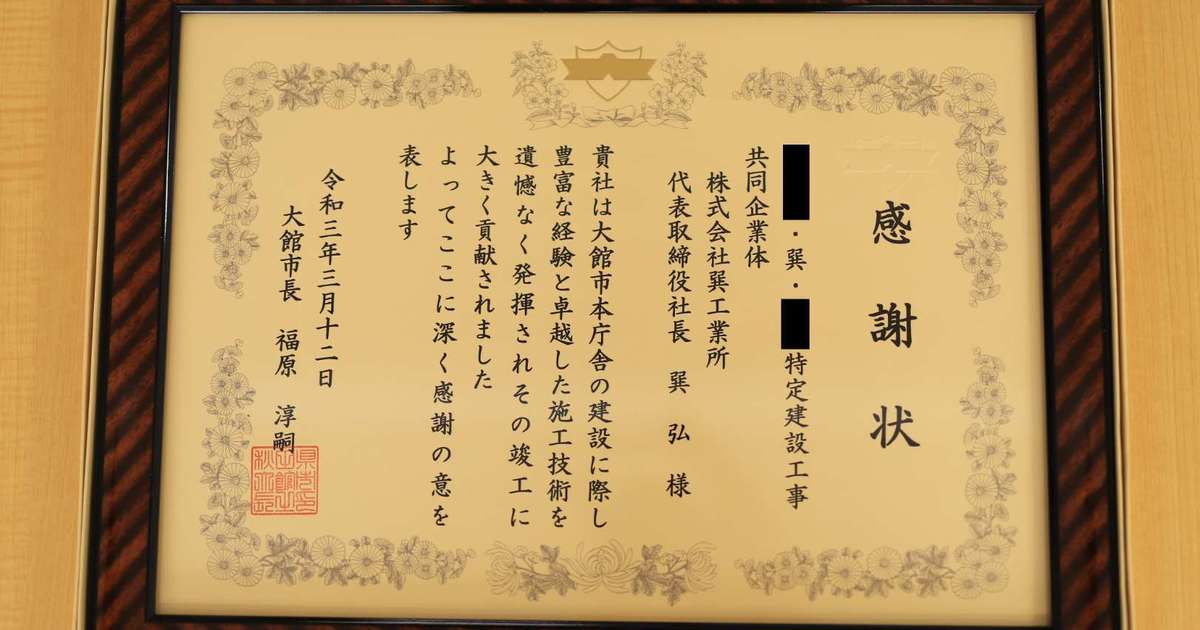 感謝状
・巽・ 特定建設工事
共同企業体
株式会社巽工業所
代表取締役社長 巽 弘 様
貴社は大館市本庁舎の建設に際し
豊富な経験と卓越した施工技術を
遺憾なく発揮されその竣工に
大きく貢献されました
よってここに深く感謝の意を
表します
令和三年三月十二日
大館市長 福原 淳嗣